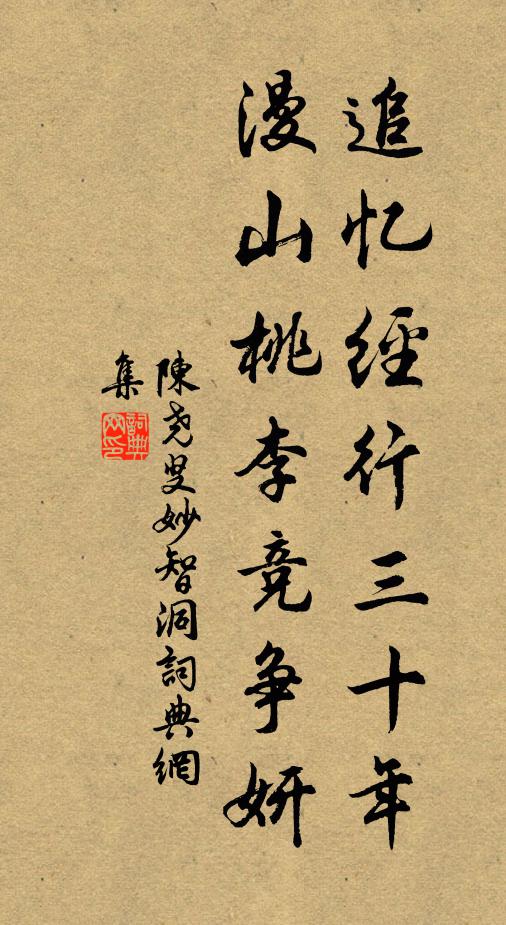 追忆經行三十年
漫山桃李竞争妍
陳尧叟妙智洞詞典網
集
詞典网印